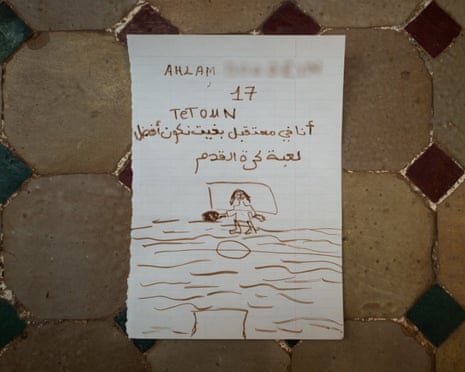 AHLAM
17
TETOUN
أنا في مستقبل بغيت نكون أفضل
لعبة كرة القدم